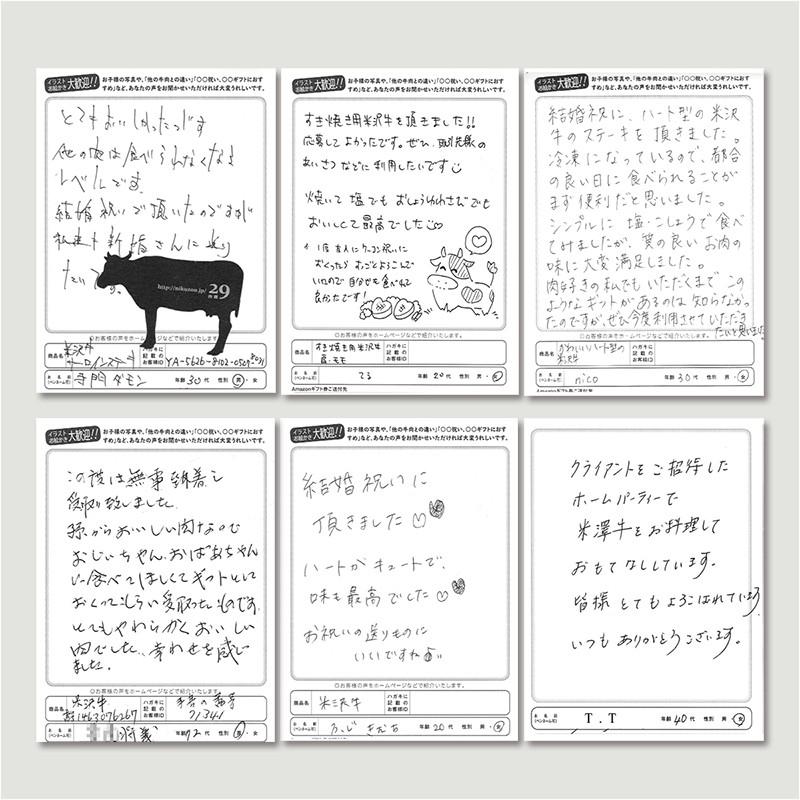 イラスト
お絵かき
大歓迎!!
お子様の写真や、「他の牛肉との違い」「〇〇祝い、〇〇ギフトにおす
すめ」など、あなたの声をお聞かせいただければ大変うれしいです。
とてもおいしかったです
他の肉は食べられなくなる
レベルです。
結婚祝いで頂いたのですが
新婚さんに送り
たいです。
http://nikuzon.jp/
29
◎お客様の声をホームページなどで紹介いたします。
商品名
米沢牛
サーロインステーキ
ハガキに
記載の
お客様ID
YA-5626-8102-0529-8031
お名前
(ペンネーム可)
寺門ダモン
年齢 30代 性別 男・女
イラスト
お絵かき
大歓迎!!
お子様の写真や、「他の牛肉との違い」「〇〇祝い、〇〇ギフトにおす
すめ」など、あなたの声をお聞かせいただければ大変うれしいです。
すき焼き用米沢牛を頂きました!!
応募してよかったです。ぜひ、取引先様の
あいさつなどに利用したいです
焼いて塩でもおしょうゆわさびでも
おいしくて最高でした
◎お客様の声をホームページなどで紹介いたします。
商品名
すき焼き用米沢牛
肩・モモ
ハガキに
記載の
お客様ID
お名前
(ペンネーム可)
てる
年齢 20代 性別 男・女
Amazonギフト券ご送付先
イラスト
お絵かき
大歓迎!!
お子様の写真や、「他の牛肉との違い」「〇〇祝い、〇〇ギフトにおす
すめ」など、あなたの声をお聞かせいただければ大変うれしいです。
結婚祝に、ハート型の米沢
牛のステーキを頂きました。
冷凍になっているので、都合
の良い日に食べられることが
まず便利だと思いました。
シンプルに塩・こしょうで食べ
てみましたが、質の良いお肉の
味に大変満足しました。
肉好きの私でもいただくまでこの
ようなギフトがあるのは知らなかっ
たのですが、ぜひ今度利用させていただき
たいと思いました
◎お客様の声をホームページなどで紹介いたします。
商品名
かわいいハート型の
米沢牛
ハガキに
記載の
お客様ID
お名前
(ペンネーム可)
nico
年齢 30代 性別 男・女
イラスト
お絵かき
大歓迎!!
お子様の写真や、「他の牛肉との違い」「〇〇祝い、〇〇ギフトにおす
すめ」など、あなたの声をお聞かせいただければ大変うれしいです。
この度は無事到着し
受取り致しました。
孫からおいしい肉なので
おじいちゃん、おばあちゃん
に食べてほしくてギフトとして
おくってもらい受取ったものです。
とてもやわらかくおいしい
肉でした。幸わせを感じ
ました。
◎お客様の声をホームページなどで紹介いたします。
商品名
米沢牛
ハガキに
記載の
お客様ID
71341
お名前
(ペンネーム可)
年齢 72代 性別 男・女
イラスト
お絵かき
大歓迎!!
お子様の写真や、「他の牛肉との違い」「〇〇祝い、〇〇ギフトにおす
すめ」など、あなたの声をお聞かせいただければ大変うれしいです。
結婚祝いに
頂きました♡
ハートがキュートで、
味も最高でした♡
お祝いの送りものに
いいですね♪
◎お客様の声をホームページなどで紹介いたします。
商品名
米沢牛
ハガキに
記載の
お客様ID
お名前
(ペンネーム可)
年齢 20代 性別 男・女
クライアントをご招待した
ホームパーティーで
米澤牛をお料理して
おもてなししています。
皆様とてもよろこばれています
いつもありがとうございます。
お名前
(ペンネーム可)
T.T
年齢 40代 性別 男・女